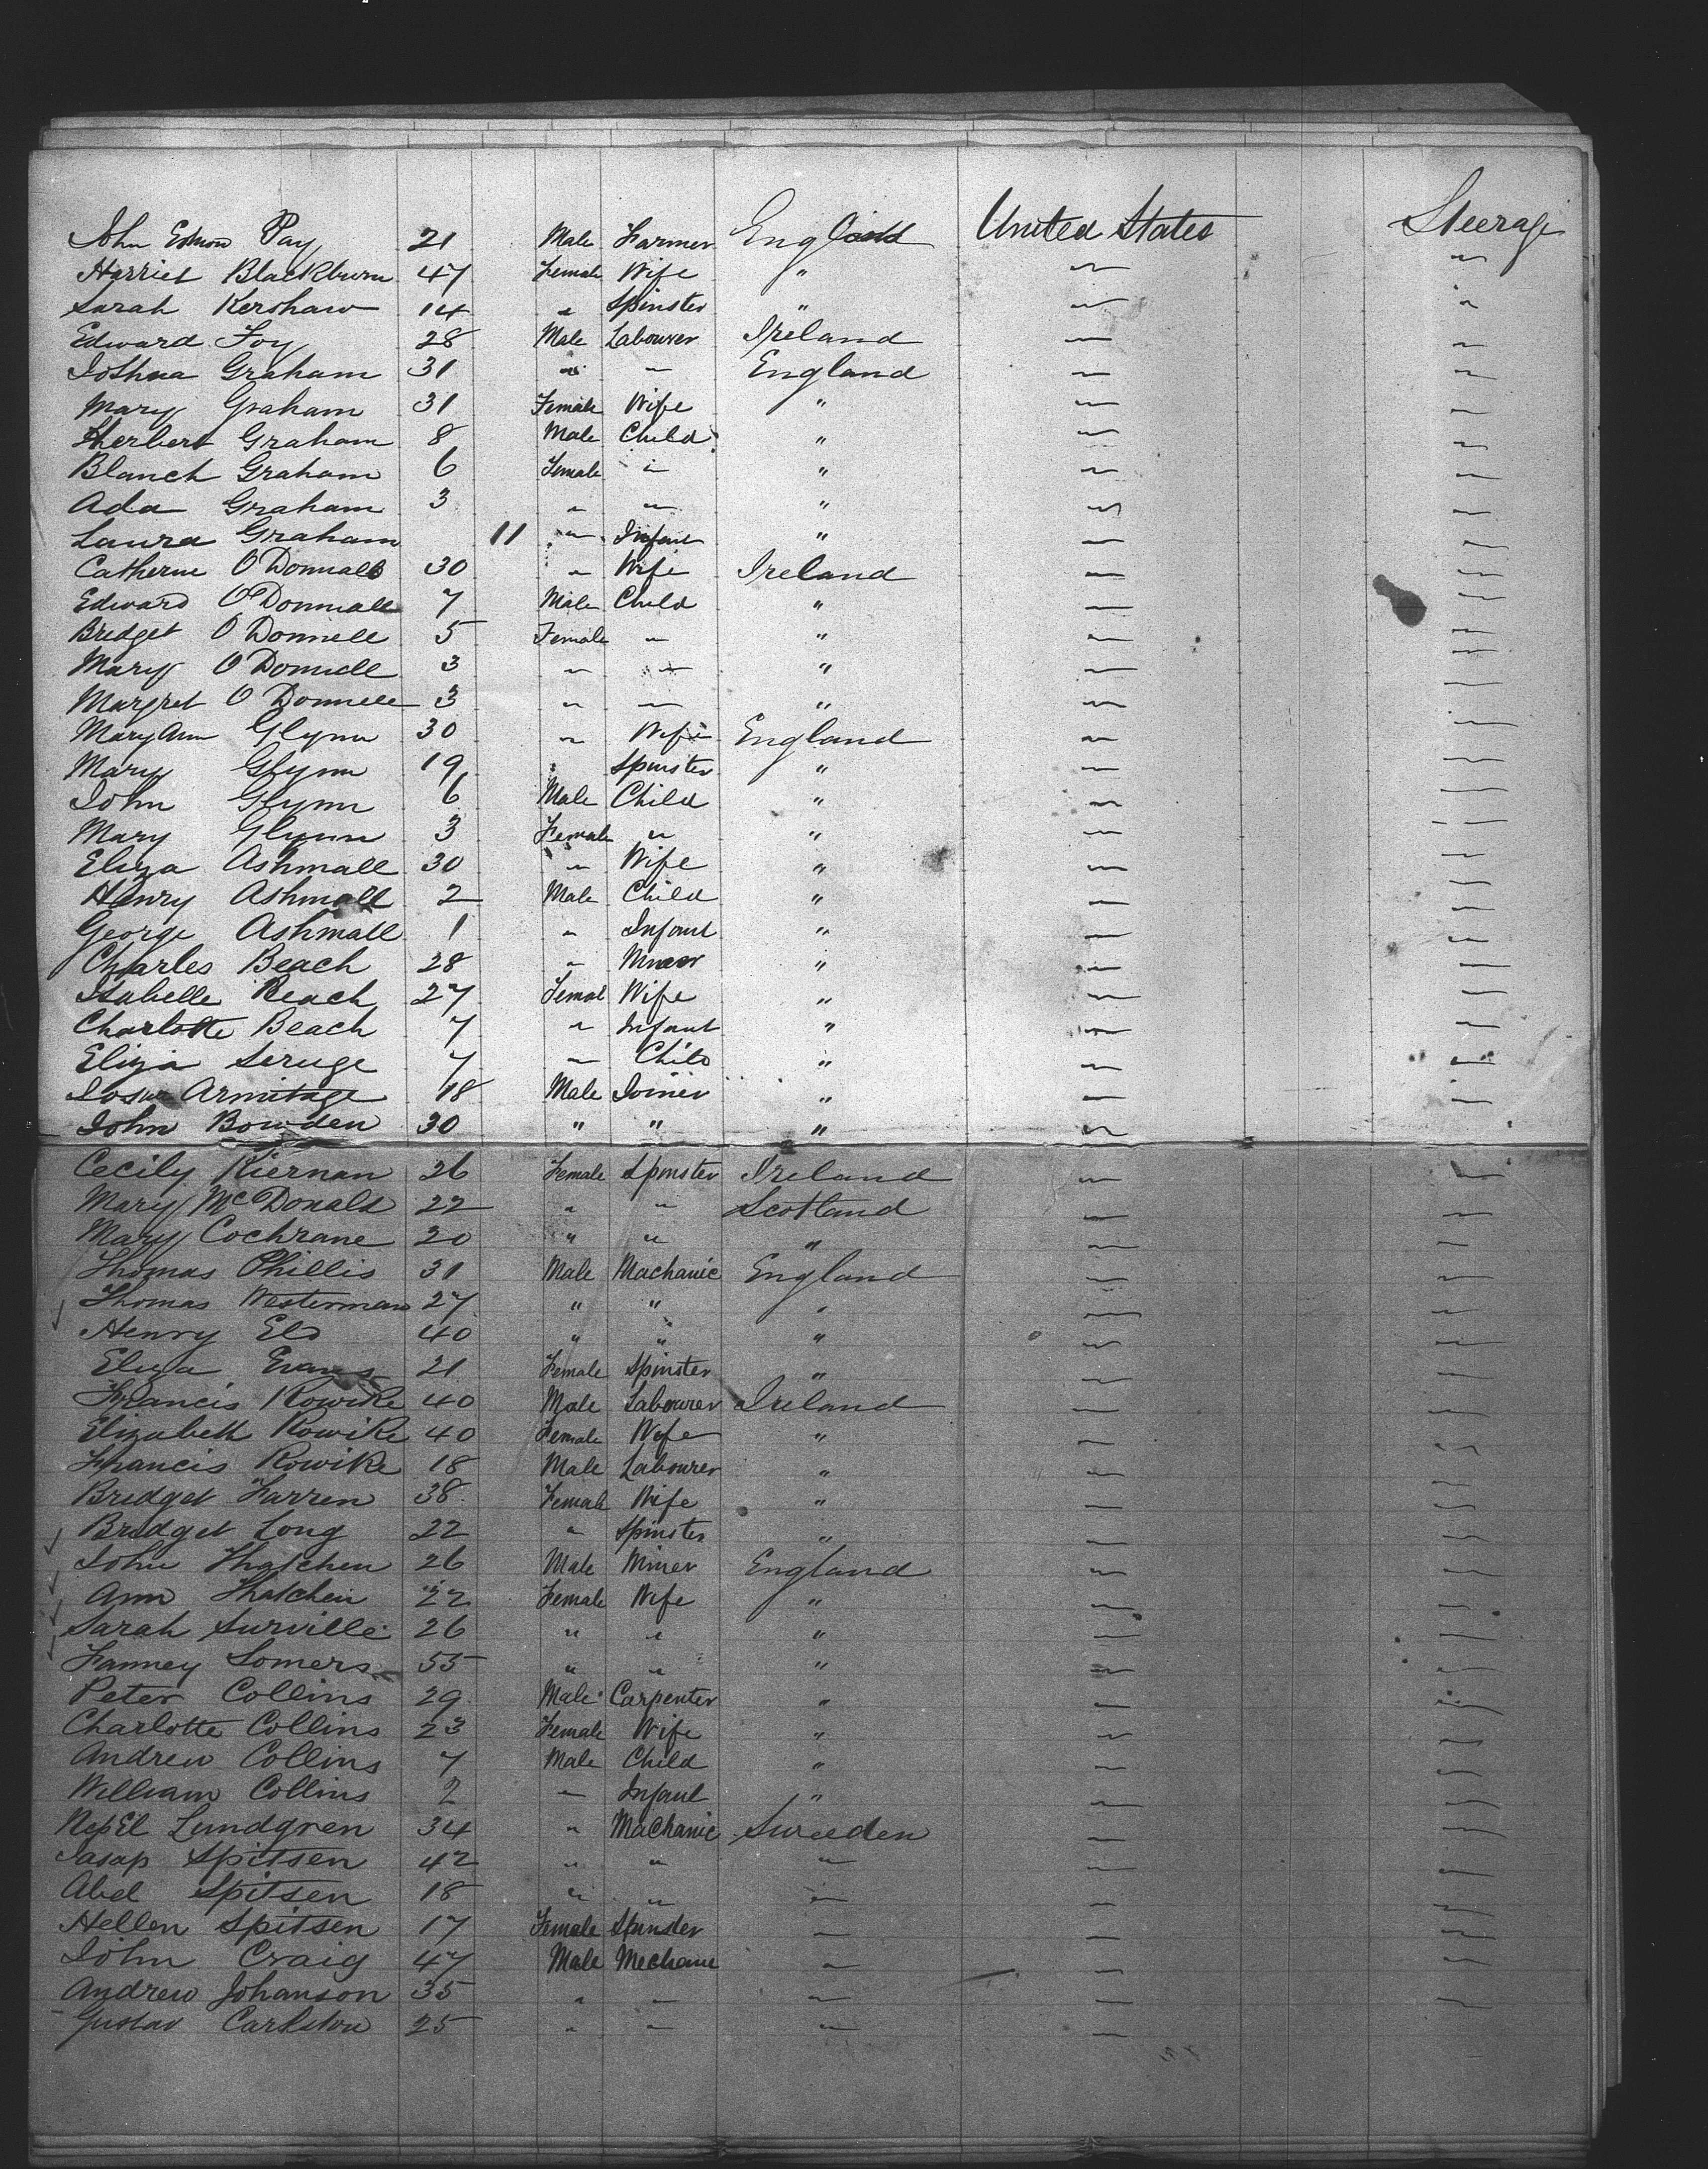 John Edmon Pay 21 Male Farmer England United States Steerage
Harriet Blackburn 47 Female Wife " " "
Sarah Kershaw 14 " Spinster " " "
Edward Foy 28 Male Labourer Ireland " "
Joshua Graham 31 " " England " "
Mary Graham 31 Female Wife " " "
Herbert Graham 8 Male Child " " "
Blanch Graham 6 Female " " " "
Ada Graham 3 " " " " "
Laura Graham 11 " Infant " " "
Catherine O'Donnall 30 " Wife Ireland " "
Edward O'Donnall 7 Male Child " " "
Bridget O'Donnell 5 Female " " " "
Mary O'Donnell 3 " " " " "
Margret O'Donnell 3 " " " " "
Mary Ann Glynn 30 " Wife England " "
Mary Glynn 19 " Spinster " " "
John Glynn 6 Male Child " " "
Mary Glynn 3 Female " " " "
Eliza Ashmall 30 " Wife " " "
Henry Ashmall 2 Male Child " " "
George Ashmall 1 " Infant " " "
Charles Beach 28 " Miner " " "
Isabelle Beach 27 Femal Wife " " "
Charlotte Beach 7 " Infant " " "
Eliza Seruge 7 " Child " " "
Armitage 18 Male Joiner " " "
John Bowden 30 " " " " "
Cecily Kiernan 26 Female Spinster Ireland " "
Mary McDonald 22 " " Scotland " "
Mary Cochrane 20 " " " " "
Thomas Phillis 31 Male Machanic England " "
Thomas Westerman 27 " " " " "
Henry Eld 40 " " " " "
Eliza Evans 21 Female Spinster " " "
Francis Rowike 40 Male Labourer Ireland " "
Elizabeth Rowike 40 Female Wife " " "
Francis Rowike 18 Male Labourer " " "
Bridget Farren 38 Female Wife " " "
Bridget Long 22 " Spinster " " "
John Thatchen 26 Male Miner England " "
Ann Thatchen 22 Female Wife " " "
Sarah Surville 26 " " " " "
Fanney Somers 55 " " " " "
Peter Collins 29 Male Carpenter " " "
Charlotte Collins 23 Female Wife " " "
Andrew Collins 7 Male Child " " "
William Collins 2 " Infant " " "
Lundgren 34 " Machanic Sweeden " "
Jasap Spitsen 42 " " " " "
Abel Spitsen 18 " " " " "
Hellen Spitsen 17 Female Spinster " " "
John Craig 47 Male Mechanic " " "
Andrew Johanson 35 " " " " "
Gustav Carlston 25 " " " "